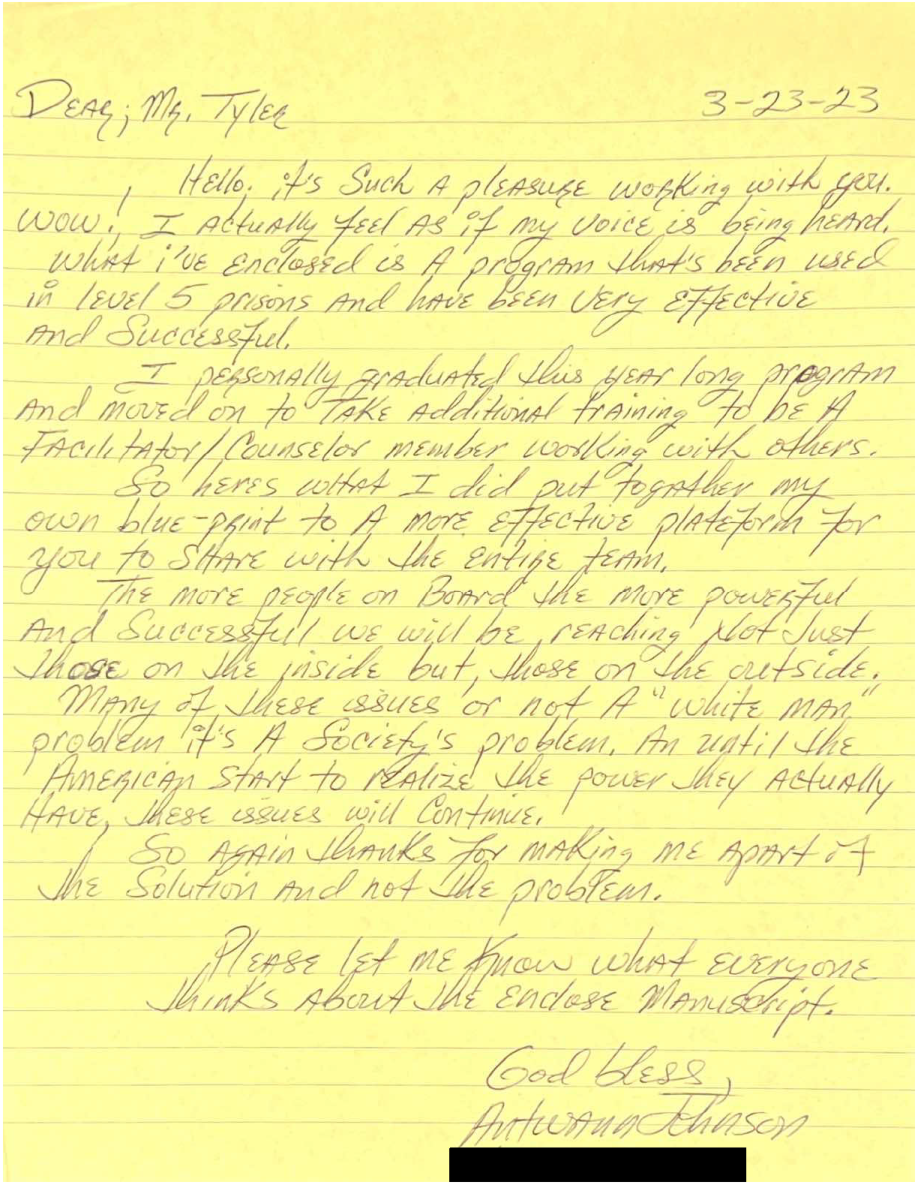 Dear; Mr. Tyler 3-23-23
Hello, it's Such A pleasure working with you.
wow! I actually feel As if my voice is being heard.
What i've enclosed is A program that's been used
in level 5 prisons And have been very effective
And Successful.
I personally graduated this year long program
And moved on to Take additional training to be A
Facilitator/Counselor member working with others.
So heres what I did put togather my
own blue-print to A more effective plateform for
you to Share with the entire team.
The more people on Board the more powerful
And Successfull we will be, reaching Not Just
those on the inside but, those on the outside.
Many of these issues or not A "white man"
problem it's A Society's problem. An until the
American Start to realize the power they Actually
Have, these issues will Continue.
So Again thanks for making me apart of
the Solution and not the problem.
Please let me know what everyone
thinks About the enclose Manuscript.
God bless,
Antwann Johnson